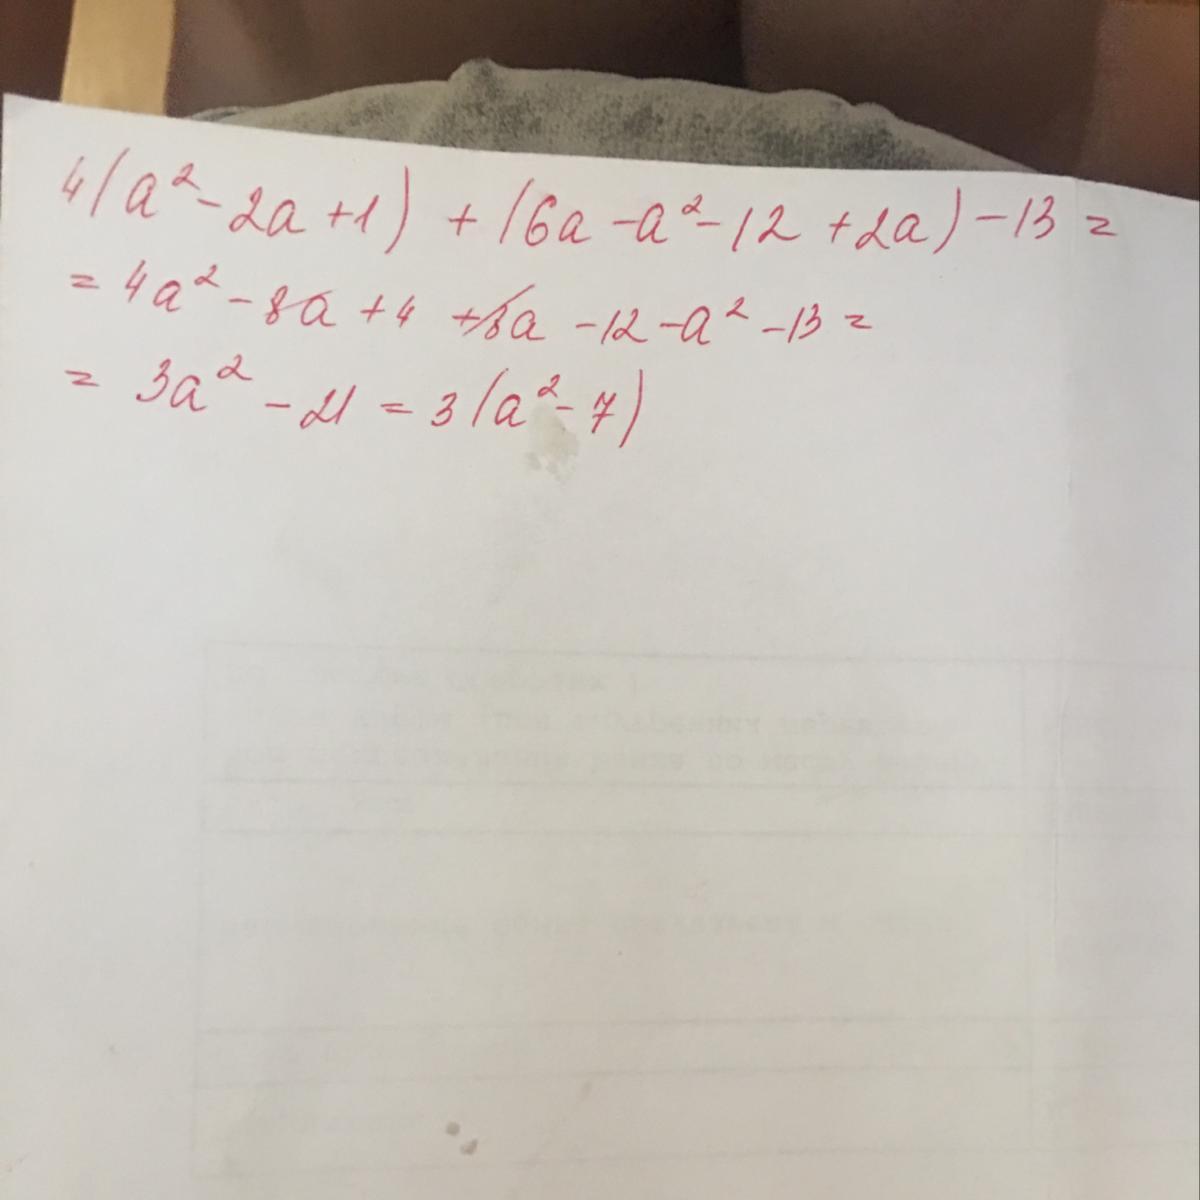 4(a²-2a+1) + (6a-a²-12+2a)-13=
=4a²-8a+4+8a-12-a²-13=
=3a²-21=3(a²-7)